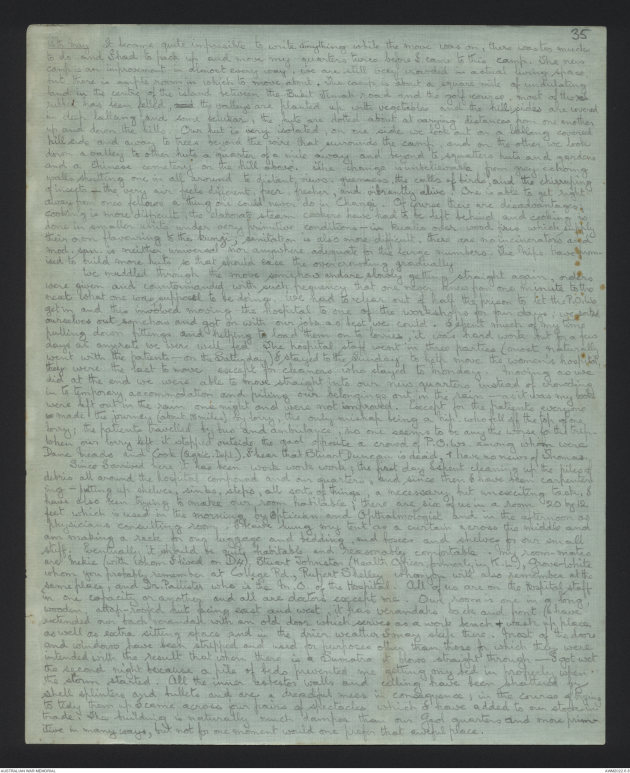 35
It became quite impossible to write anything while the move was on, there was too much
to do and I had to pack up and move my quarters twice before I came to this camp. The new
camp is an improvement in almost every way; we are still very crowded in actual living space
but there is ample room in which to move about. The camp is about a square mile of undulating
land in the centre of the island between the Bukit Timah road and the golf course; most of the
rubber has been felled, the valleys are planted up with vegetables and the hillsides are covered
in deep lallang and some secular, the huts are dotted about at varying distances from one another
up and down the hills. Our hut is very isolated, on one side we look out on a lallang covered
hillside and away to trees beyond the wire that surrounds the camp, and on the other we look
down a valley to other huts a quarter of a mile away and beyond to squatters huts and gardens
and a Chinese cemetery on the hill above. The change is unbelievable from grey echoing
walls shutting one in all around to distant views, greenness, the calls of birds and the chirruping
of insects - the very air feels different, freer, fresher, and vibrantly alive. One is able to get right
away from ones fellows a thing one could never do in Changi. Of course there are disadvantages;
cooking is more difficult, the elaborate steam cookers have had to be left behind and cooking is
done in smaller units under very primitive conditions - in kualis over wood fires which supply
their own flavouring to the bunji; sanitation is also more difficult, there are no incinerators and
mod. san. is neither universal nor anywhere adequate for the large numbers. The Nips have prom-
ised to build more huts so that should ease the overcrowding gradually.
We muddled through the move somehow and are slowly getting straight again, orders
were given and countermanded with such frequency that one never knew from one minute to the
next what one was supposed to be doing. We had to clear out of half the prison to let the P.O.Ws
get in and this involved moving the hospital to one of the workshops for four days; we sorted
ourselves out somehow and got on with our jobs as best we could. I spent much of my time
pulling down things and helping to load them on to lorries, it was hard work but for a few
days at any rate we were well fed. The hospital staff went in three parties (most naturally
went with the patients - on the Saturday) I stayed to the Sunday to help move the women's hospital,
they were the last to move except for cleaners who stayed to Monday. Moving as we
did at the end we were able to move straight into our new quarters instead of crowding
in to temporary accommodation and piling our belongings out in the rain - as it was my books
were left out in the rain one night and were not improved. Except for the patients everyone
made the journey (about miles) by lorry, the only mishap being a nip who fell off the top of one
lorry; the patients travelled by bus and ambulance, no one seems to be any the worse for the trip.
When our lorry left it stopped outside the gaol opposite a crowd of P.O.Ws among whom were
Dave Meads and Cook (Agric. Dept.), I hear that Stuart Duncan is dead, I have no news of Thomas.
Since I arrived here it has been work work work; the first day I spent cleaning up the piles of
debris all around the hospital compound and our quarters, and since then I have been carpenter-
ing - putting up shelves, sinks, steps, all sorts of things, a necessary but unexciting task. I
have also been trying to make our room habitable; there are six of us in a room 20 by 12
feet which is used in the mornings by Opticians and Opthalmologist and in the afternoon as
Physicians consulting room. I have hung my tent as a curtain across the middle and
am making a rack for our luggage and bedding, and boxes and shelves for our small
stuff; eventually it should be quite habitable and reasonably comfortable. My room mates
are Mekie (with whom I lived on D4), Stuart Johnston (Health Officer formerly in K.L.), Graves White
whom you probably remember at College Rd., Rupert Shelley whom you will also remember at the
same place, and Dr Pallister who is the C.M.O. of the Hospital. All of us are on the Hospital staff
in one capacity or another and all are doctors except me. Our room is one in a long
wooden, attap-roofed hut facing east and west, it has verandahs back and front (I have
extended our back verandah with an old door which serves as a work bench & wash up place
as well as extra sitting space and in the drier weather we may sleep there. Most of the doors
and windows have been stripped and used for purposes other than those for which they were
intended with the result that when there is a Sumatra it blows straight through - I got wet
the second night because a pile of beds prevented me getting my bed in properly when
the storm started. All the inner asbestos walls and ceilings have been shattered by
shell splinters and bullets and are a dreadful mess in consequence; in the course of trying
to tidy them up I came across four pairs of spectacles which I have added to our stock in
trade. The building is naturally much damper than our Gaol quarters and more primi-
tive in many ways, but not for one moment would one prefer that awful place.
AUSTRALIAN WAR MEMORIAL